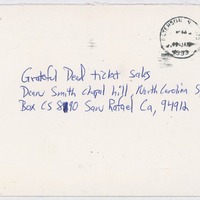 Grateful Dead ticket sales
Dean Smith chapel hill, North Carolina S
Box CS 8190 San Rafael Ca, 94912